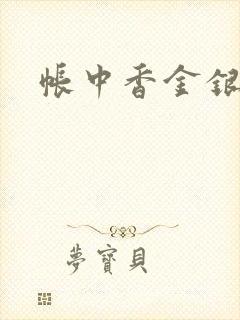 帳中香金銀
夢寶貝